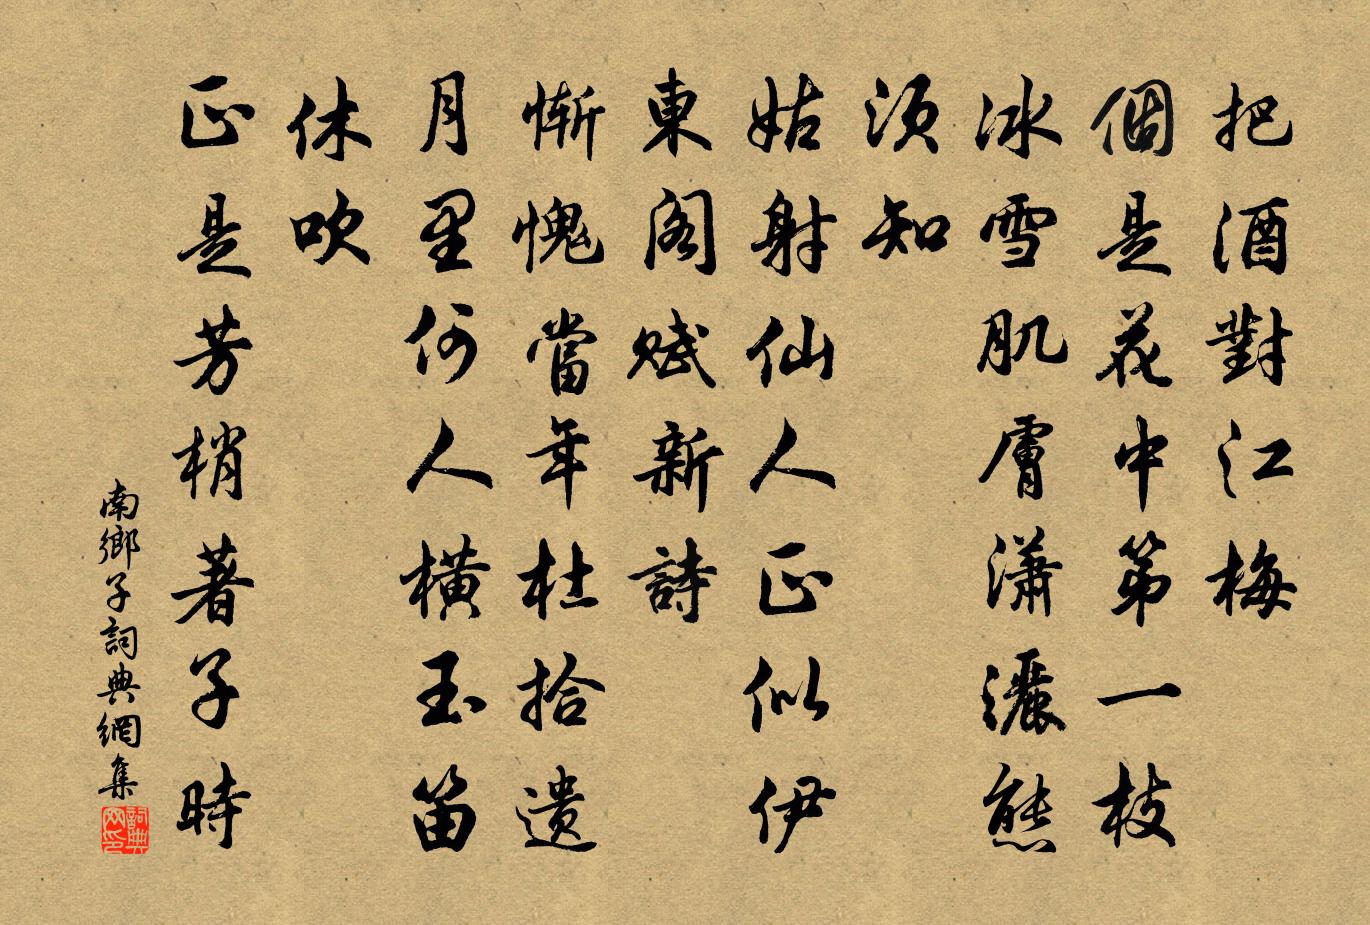 把酒對江梅
個是花中第一枝
冰雪肌膚瀟灑態
須知
姑射仙人正似伊
東閣賦新詩
慚愧當年杜拾遺
月里何人橫玉笛
休吹
正是芳梢著子時
南鄉子詞典網集
詞典网印